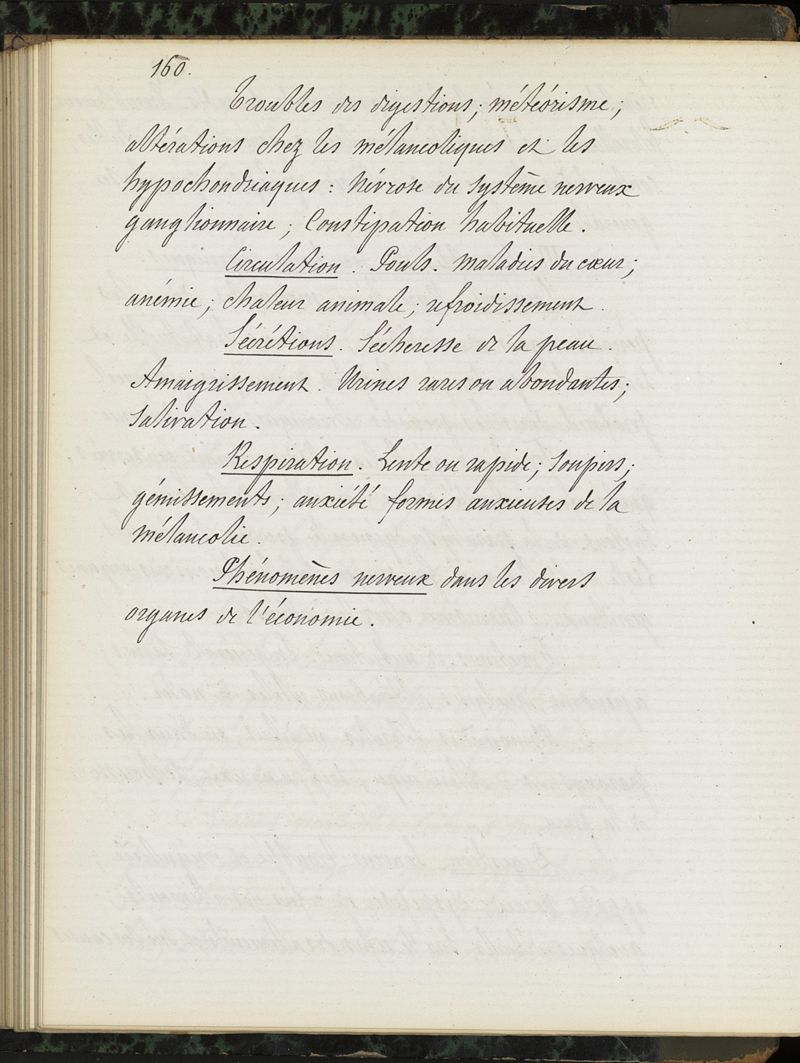 160.
Troubles des digestions; météorisme;
altérations chez les mélancoliques et les
hypochondriaques : Névrose du système nerveux
ganglionnaire; Constipation habituelle.
Circulation. Pouls. Maladies du cœur;
anémie; chaleur animale; refroidissement.
Sécrétions. Sécheresse de la peau.
Amaigrissement. Urines rares ou abondantes;
Salivation.
Respiration. Lente ou rapide; soupirs;
gémissements; anxiété formes anxieuses de la
mélancolie.
Phénomènes nerveux dans les divers
organes de l'économie.